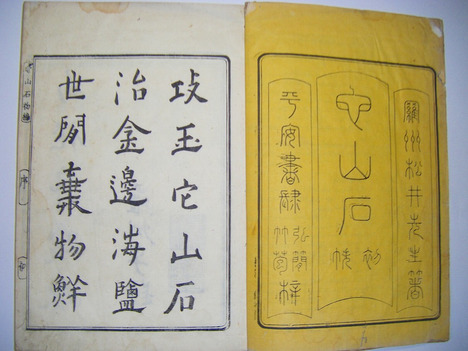 羅州松井先生著
它山石
初帙
平安書肆
弘簡
竹苞
梓
攻玉它山石
治金邊海鹽
世間棄物鮮
它山石初編
序